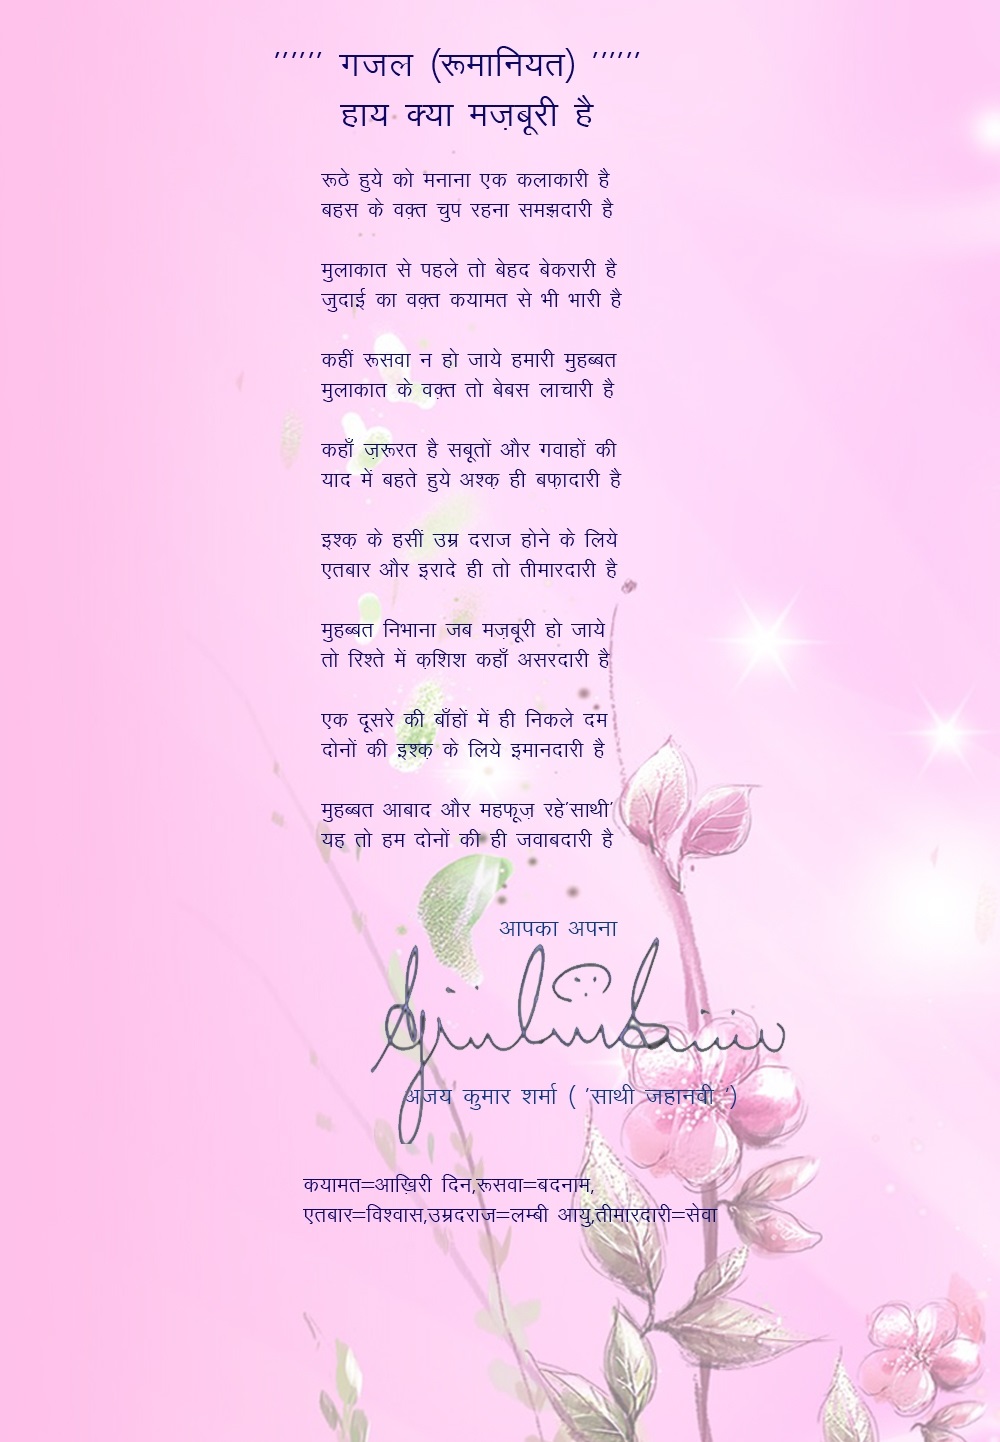 ’’’’’’ गजल (रूमानियत) ’’’’’’
हाय क्या मज़बूरी है
रूठे हुये को मनाना एक कलाकारी है
बहस के वक़्त चुप रहना समझदारी है
मुलाकात से पहले तो बेहद बेकरारी है
जुदाई का वक़्त कयामत से भी भारी है
कहीं रूसवा न हो जाये हमारी मुहब्बत
मुलाकात के वक़्त तो बेबस लाचारी है
कहाँ ज़रूरत है सबूतों और गवाहों की
याद में बहते हुये अश्क़ ही बफ़ादारी है
इश्क़ के हसीं उम्र दराज होने के लिये
एतबार और इरादे ही तो तीमारदारी है
मुहब्बत निभाना जब मज़बूरी हो जाये
तो रिश्ते में क़शिश कहाँ असरदारी है
एक दूसरे की बाँहों में ही निकले दम
दोनों की इश्क़ के लिये इमानदारी है
मुहब्बत आबाद और महफूज़ रहे’साथी’
यह तो हम दोनों की ही जवाबदारी है
आपका अपना
अजय कुमार शर्मा ( ’साथी जहानवी ’)
कयामत=आख़िरी दिन,रूसवा=बदनाम,
एतबार=विश्वास,उम्रदराज=लम्बी आयु,तीमारदारी=सेवा